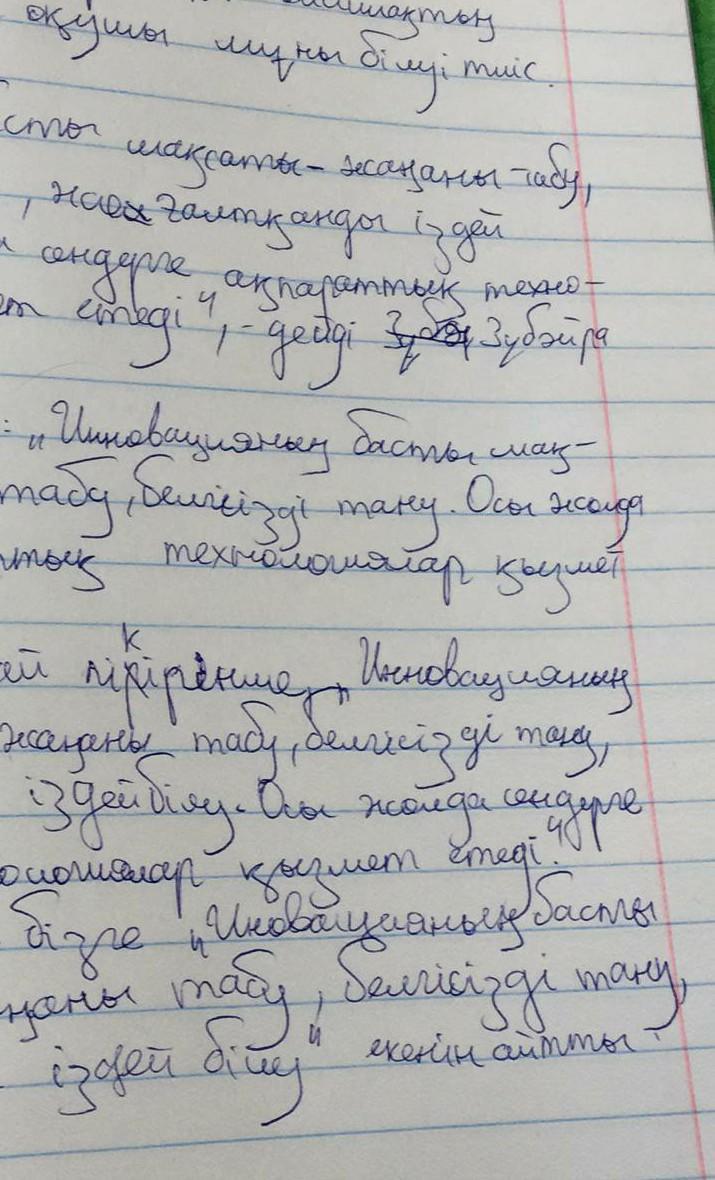 оқушы мұны білуі тиіс.
сты мақсаты – жаңаны табу,
, жоғалтқанды іздей
сендерге ақпараттық техно-
ет етеді", - дейді Зүбәйра
: „Инновацияның басты мақ-
табу, белгісізді тану. Осы жолда
тық технологиялар қызмет
ай пікірінше, „Инновацияның
жаңаны табу, белгісізді тану,
іздей білу. Осы жолда сендерге
ологиялар қызмет етеді."
бізге „Иновацияның басты
ңаны табу, белгісізді тану,
іздей білу" екенін айтты.